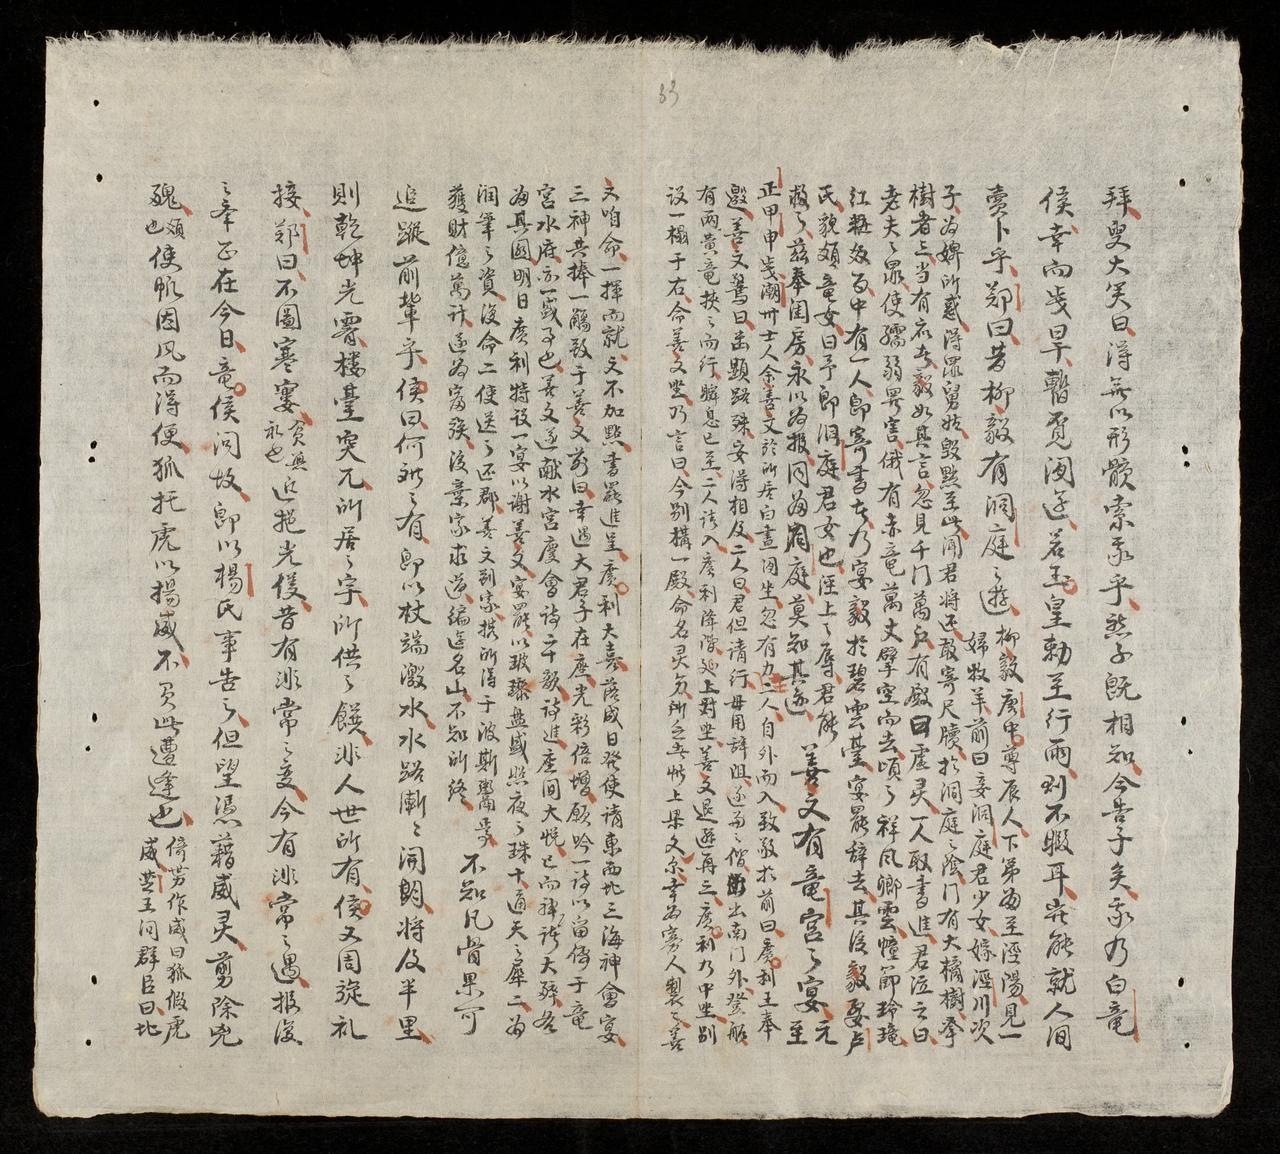 拜叟大笑曰淂無以形骸索我乎然子既相知今告子矣我乃白竜
侯幸而歲旱暫覔閑逰若玉皇勅至行雨則不暇耳豈能就人间
賣卜乎郑曰昔柳毅有洞庭之逰
柳毅唐中尊辰人下第為至淫陽見一
婦牧羊前曰妾洞庭君少女嫁淫川次
子為婢所惑淂罪舅姑毀黜至此闻君将还敢寄尺牘於洞庭之陰门有大橘樹拳
樹者三当有应者毅如其言忽見千门萬户有殿曰虚灵一人取書進君泣之曰
老夫之罪使孺弱罹害俄有赤竜萬丈擘空而去頃之祥风卿雲幢節玲瓏
紅粧数百中有一人即寄書者乃宴毅於碧雲臺宴罷辞去其後毅娶卢
氏貌頗竜女曰予即洞庭君女也淫上之辱君能
救之茲奉闺房永以為报同為洞庭莫知其迹
善文有竜宫之宴
元
至
正甲申歲潮卅士人余善文於所居白晝闲坐忽有力士二人自外而入致敬於前曰广利王奉
邀善文驚曰幽顯路殊安淂相及二人曰君但请行毋用辞阻遂与之偕出南门外登船
有两黄竜挾之而行瞬息已至二人请入广利降階延上对坐善文退遜再三广利乃中坐别
设一榻于右命善文坐乃言曰今别構一殿命名灵夯所乏者惟上梁文尔幸为寡人製之善
文咱命一揮而就文不加點書罷進呈广利大喜落成日發使请東西北三海神會宴
三神共捧一觴致于善文前曰幸遇大君子在座光彩倍增願吟一诗以留傳于竜
宫水府亦一盛事也善文遂献水宫慶會诗二十韵诗進座间大悦已而神诧大殊各
為具圆明日广利特设一宴以谢善文宴罷以玻瓈盘盛照夜之珠十通天之犀二为
润筆之資復命二使送之还郡善文到家携所淂于波斯鬻焉
獲財億萬计遂为富族後棄家求道徧逰名山不知所终
不知凡骨果可
追蹤前輩乎侯曰何难之有即以杖端激水水路漸漸开朗将及半里
則乾坤光霽楼臺突兀所居之宇所供之饌非人世所有侯又周旋礼
接郑曰不圖寒窶
貧無
礼也
近挹光儀昔有非常之变今有非常之遇报復
之牽正在今日竜侯问故郎以楊氏事告之但望憑藉威灵剪除兇
醜
頗
也
使帆因风而淂便狐托虎以揚威不負此遭逢也
倚势作威曰狐假虎
威楚王问群臣曰北